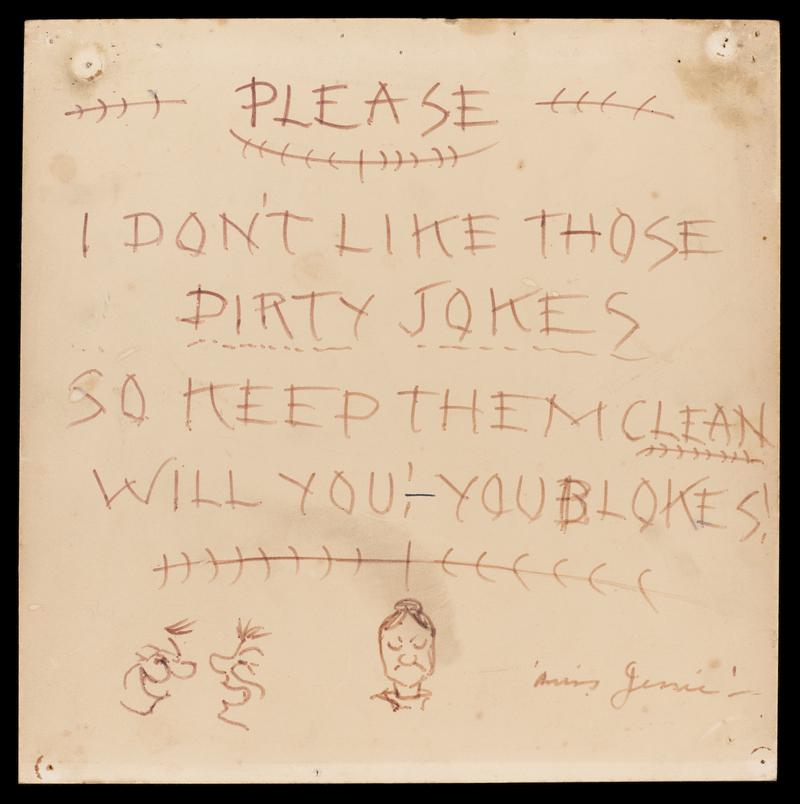 PLEASE
I DON'T LIKE THOSE
DIRTY JOKES
SO KEEP THEM CLEAN
WILL YOU!-YOU BLOKES!
'miss Jessie'-